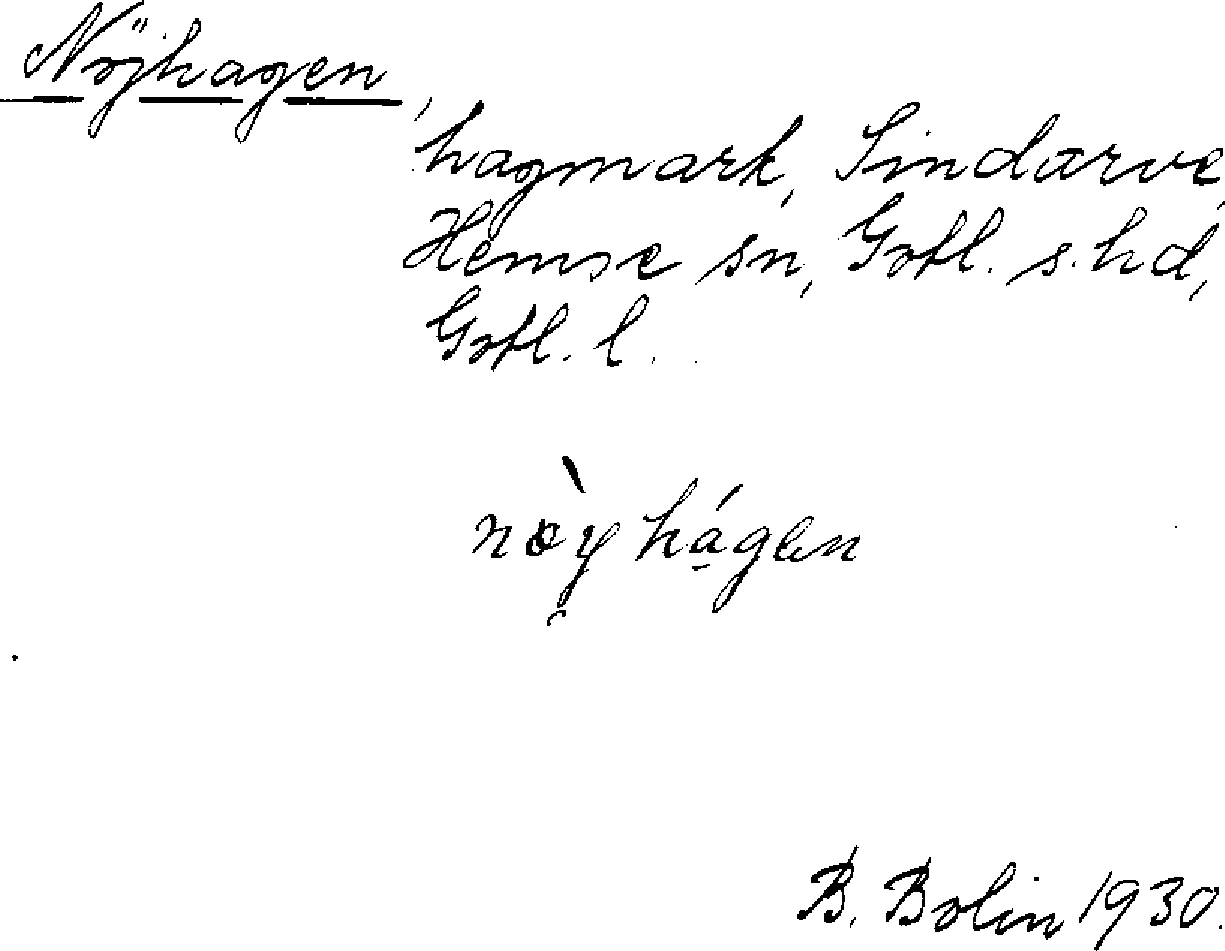 Nöjhagen,
hagmark, Sindarve,
Hemse sn, Gotl. s. hd,
Gotl. l.
B. Bolin 1930.